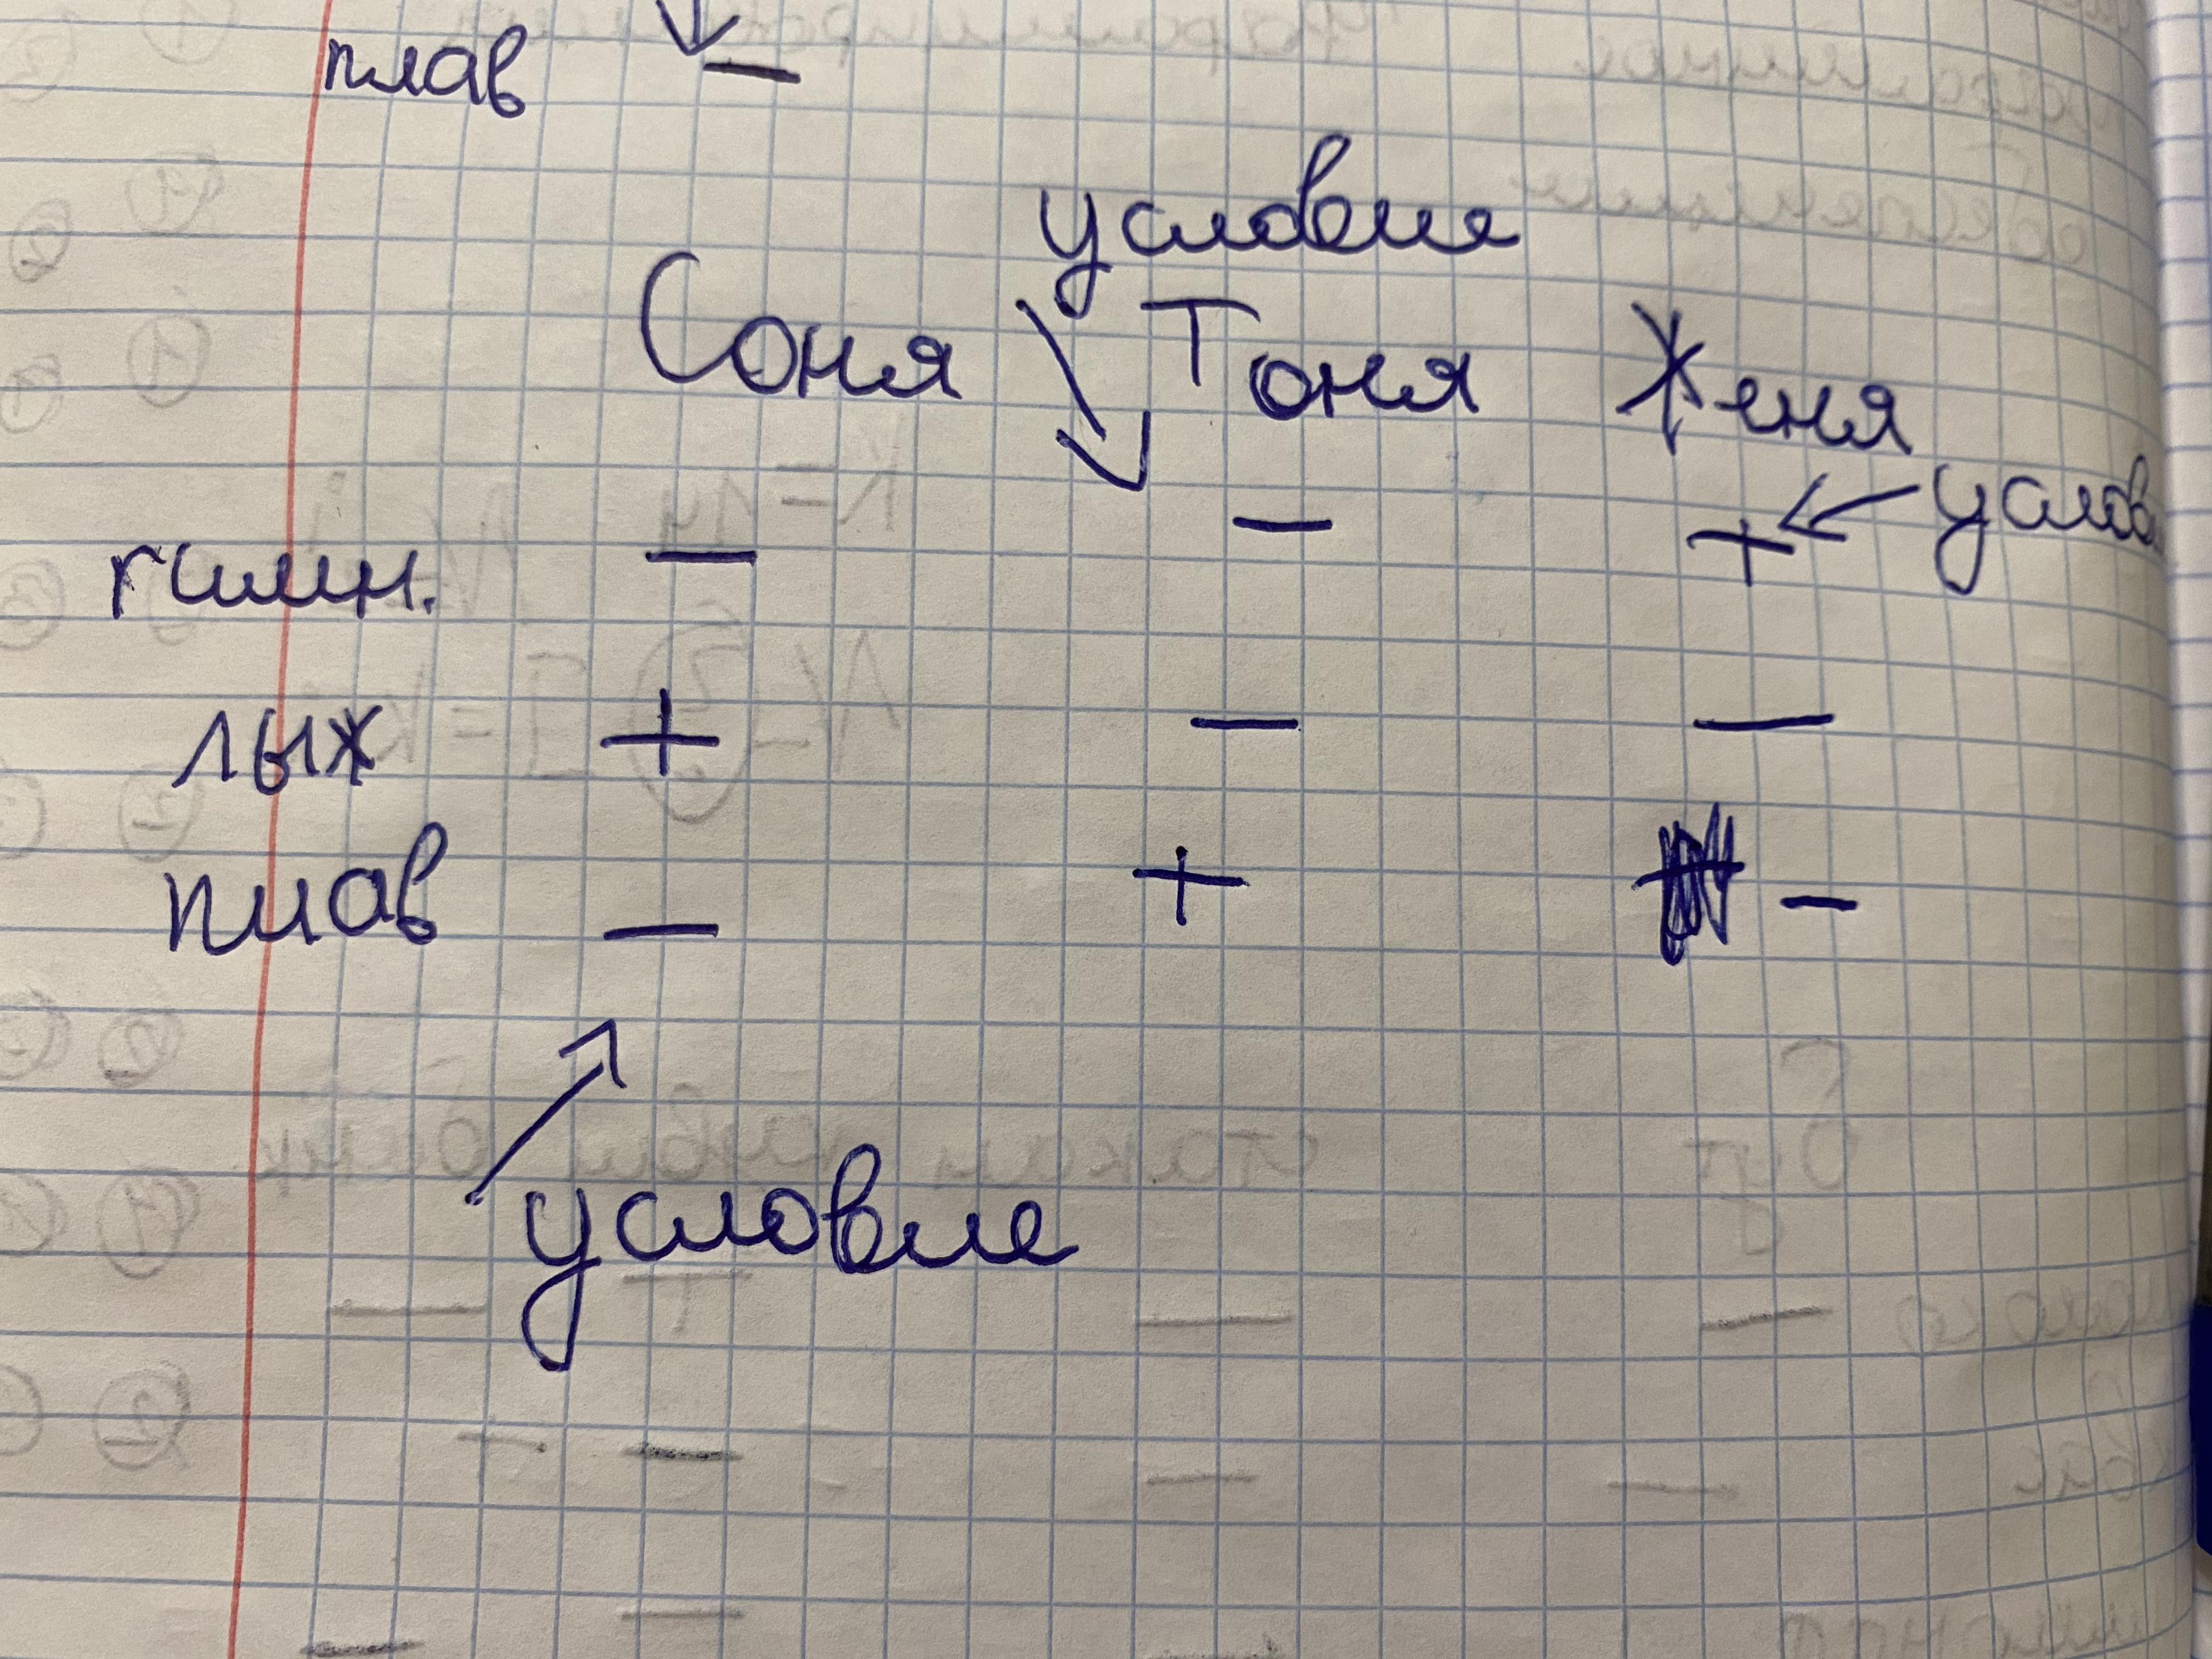 плав –
условие
Соня Тоня Женя
гимн. – – + услов
лых + – –
плав – + –
условие